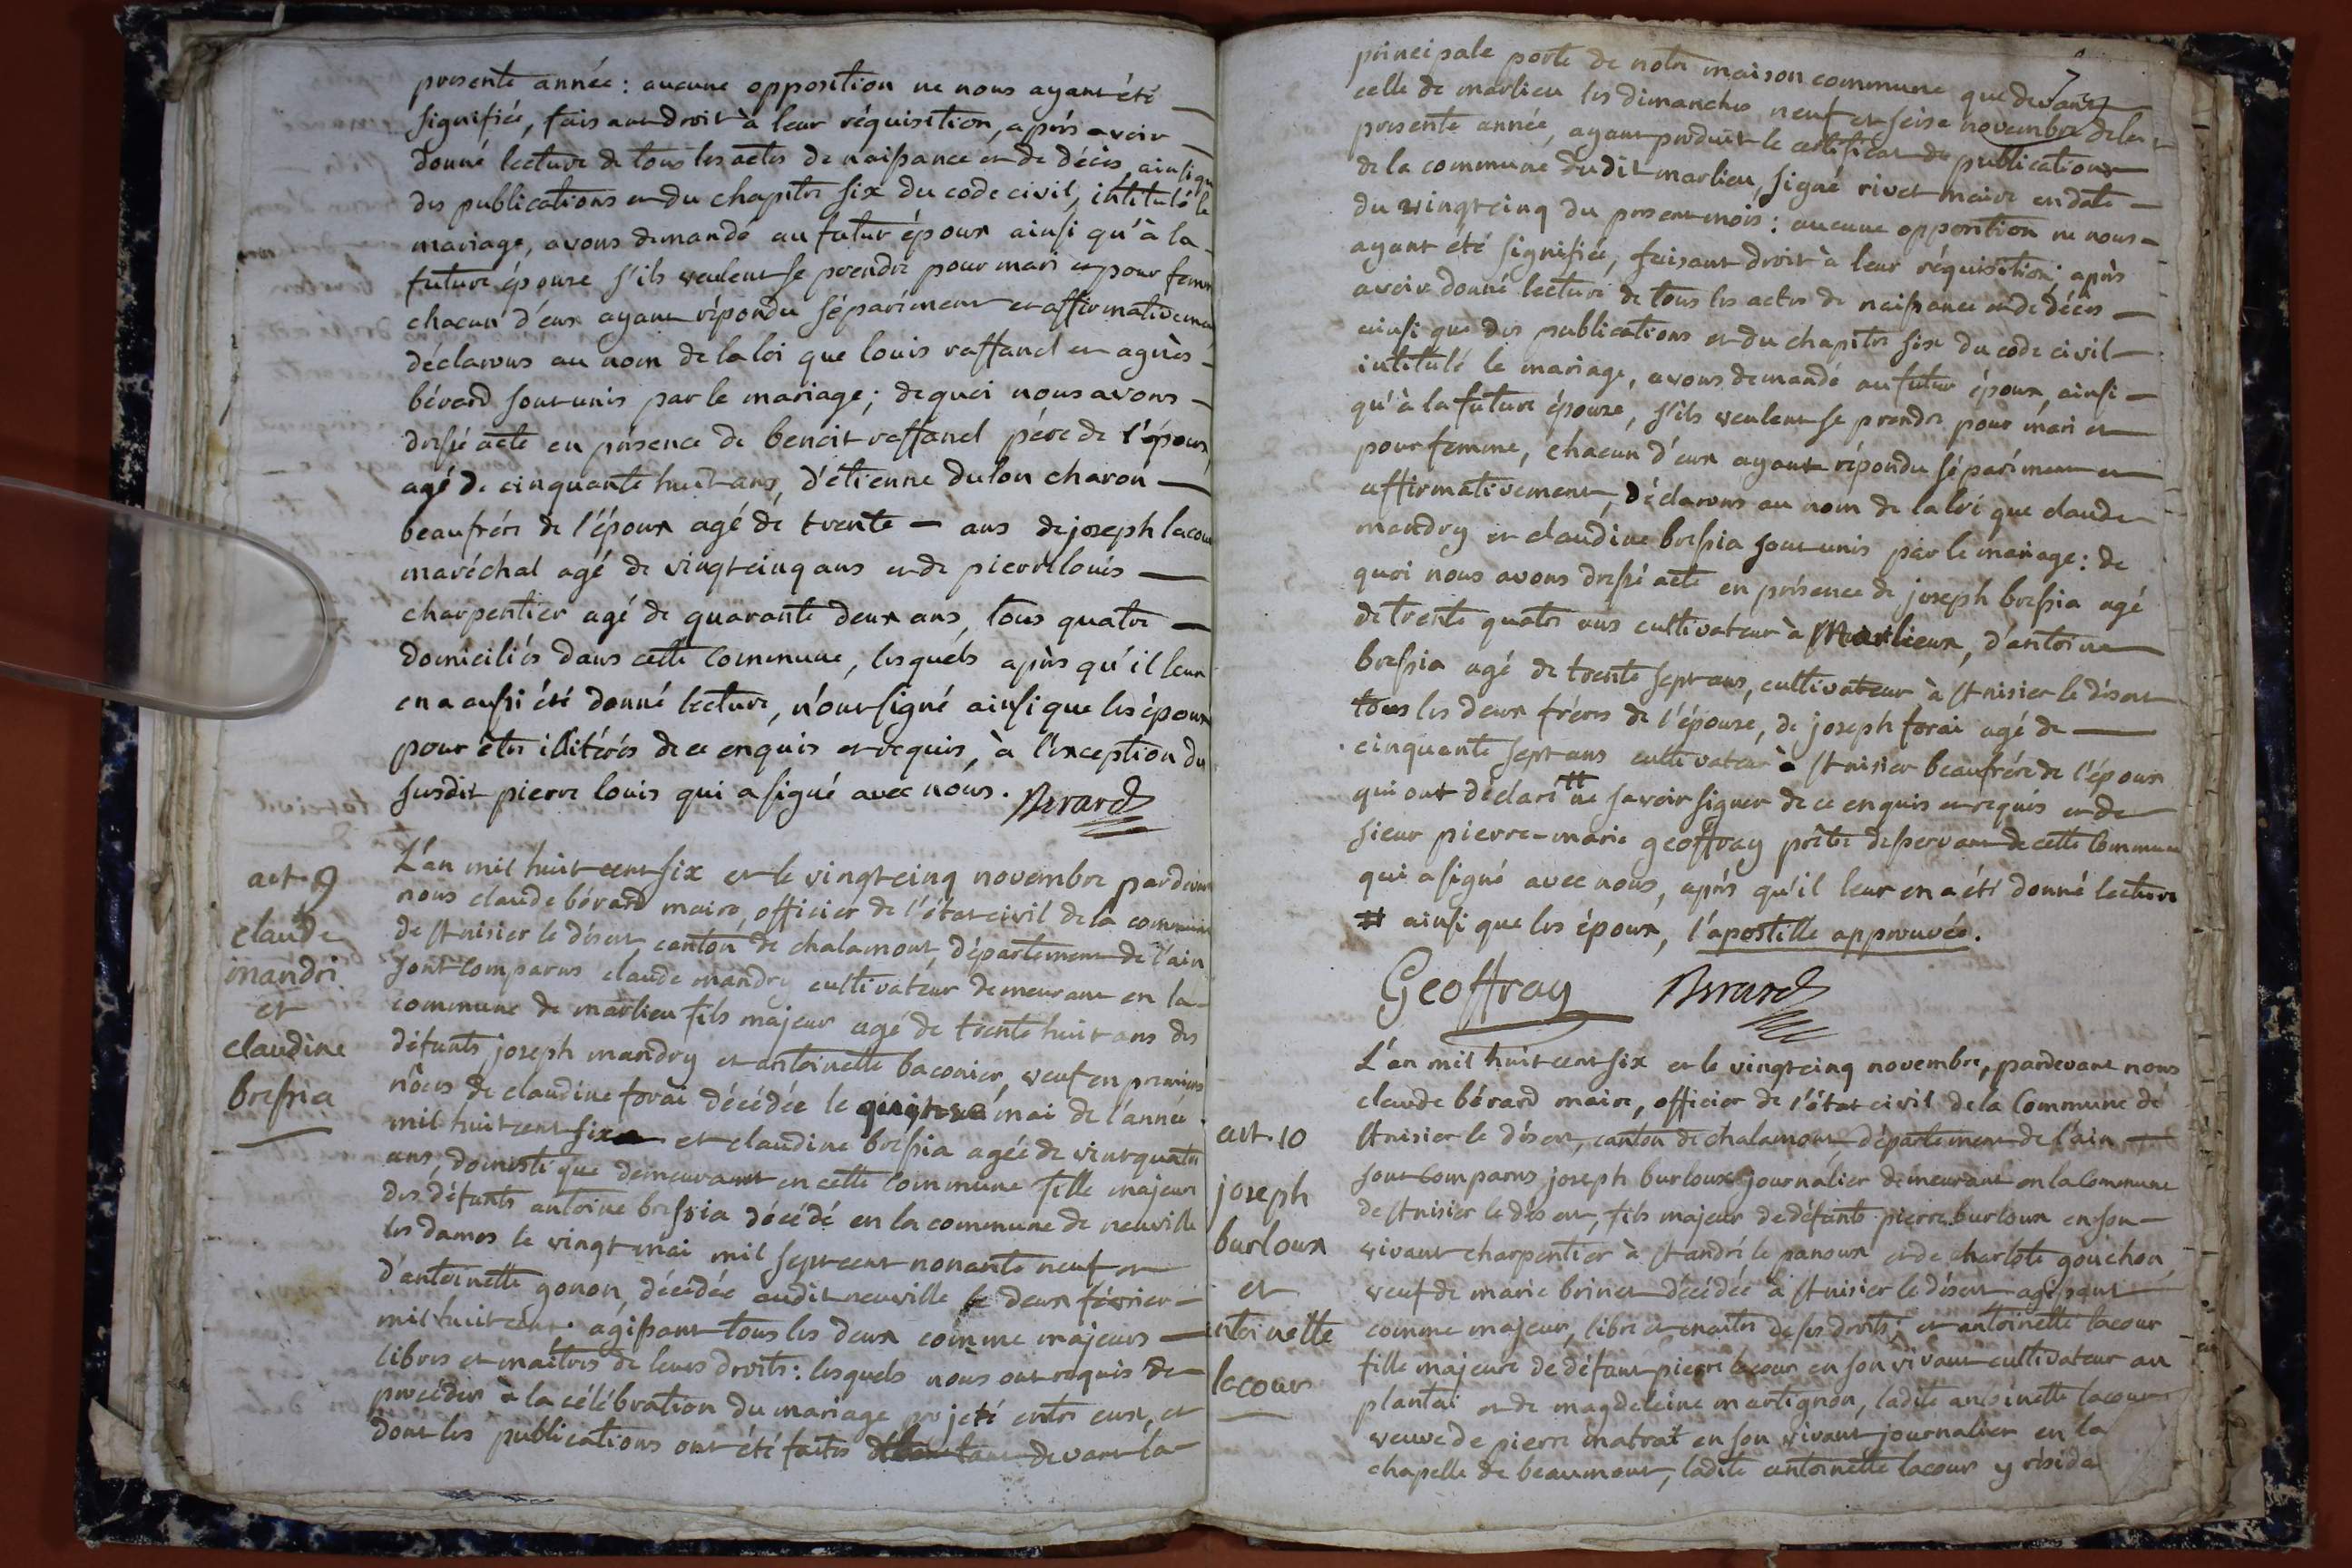 presente année : aucune opposition ne nous ayant été
signifiée, faisant droit à leur réquisition, après avoir
donné lecture de tous les actes de naissance et de décès, ainsi que
des publications et du chapitre six du code civil, intitulé le
mariage, avons demandé au futur époux ainsi qu'à la
future épouse s'ils veulent se prendre pour mari et pour femme
chacun d'eux ayant répondu séparément et affirmativement
déclarons au nom de la loi que louis raffanel et agnès
bérard sont unis par le mariage ; de quoi nous avons
dressé acte en présence de benoit raffanel père de l'époux,
agé de cinquante huit ans, d'étienne dulon charon
beaufrère de l'époux agé de trente — ans de joseph lacour
maréchal agé de vingt cinq ans et de pierre louis
charpentier agé de quarante deux ans, tous quatre
domiciliés dans cette commune, lesquels après qu'il leur
en a aussi été donné lecture, n'ont signé ainsi que les époux
pour etre illitérés de ce enquis et requis, à l'exception du
susdit pierre louis qui a signé avec nous. Berard
art. 9
claude
mandri
et
claudine
bressia
L'an mil huit cent six et le vingt cinq novembre pardevant
nous claude bérard maire, officier de l'état civil de la commune
de st nisier le désert, canton de chalamont, département de l'ain
sont comparus claude mandry cultivateur demeurant en la
commune de marlieu fils majeur agé de trente huit ans des
défunts joseph mandry et antoinette baconier, veuf en premières
nôces de claudine forai décédée le quinze mai de l'année
mil huit cent six et claudine bressia agée de vint quatre
ans, domestique demeurant en cette commune fille majeure
des défunts antoine bressia décédé en la commune de neuville
les dames le vingt mai mil sept cent nonante neuf et
d'antoinette gonon, décédée audit neuville le deux février
mil huit cent : agissant tous les deux comme majeurs
libres et maitres de leurs droits : lesquels nous ont requis de
procéder à la célébration du mariage projeté entre eux, et
dont les publications ont été faites tant devant la
7
principale porte de notre maison commune que devant
celle de marlieu les dimanches neuf et seise novembre de la
presente année, ayant produit le certificat de publication
de la commune dudit marlieu, signé rivet maire en date
du vingt cinq du present mois : aucune opposition ne nous
ayant été signifiée, faisant droit à leur réquisition ; après
avoir donné lecture de tous les actes de naissance et de décès
ainsi que des publications et du chapitre six du code civil
intitulé le mariage, avons demandé au futur époux, ainsi
qu'à la future épouse, s'ils veulent se prendre pour mari et
pour femme, chacun d'eux ayant répondu séparément et
affirmativement, déclarons au nom de la loi que claude
mandry et claudine bressia sont unis par le mariage : de
quoi nous avons dressé acte en présence de joseph bressia agé
de trente quatre ans cultivateur à Marlieux, d'antoine
bressia agé de trente sept ans, cultivateur à st nisier le désert
tous les deux frères de l'épouse, de joseph forai agé de
cinquante sept ans cultivateur à st nisier beaufrère de l'époux
qui ont déclaré # ne savoir signer de ce enquis et requis et de
sieur pierre-marie geoffray prêtre desservant de cette commune
qui a signé avec nous, après qu'il leur en a été donné lecture
# ainsi que les époux, l'apostille approuvée.
Geoffray Berard
art. 10
joseph
burloux
et
antoinette
lacour
L'an mil huit cent six et le vingt cinq novembre, pardevant nous
claude bérard maire, officier de l'état civil de la Commune de
st nisier le désert, canton de chalamont, département de l'ain
sont comparus joseph burloux journalier demeurant en la Commune
de st nisier le désert, fils majeur de défunts pierre burloux en son
vivant charpentier à st andré le panoux et de charlote gouchon,
veuf de marie brinet décédée à st nisier le désert agissant
comme majeur, libre et maitre de ses droits ; et antoinette lacour
fille majeure de défunt pierre lacour en son vivant cultivateur au
plantai et de magdeleine martignon, ladite antoinette lacour
veuve de pierre matrat en son vivant journalier en la
chapelle de beaumont, ladite antoinette lacour y résida